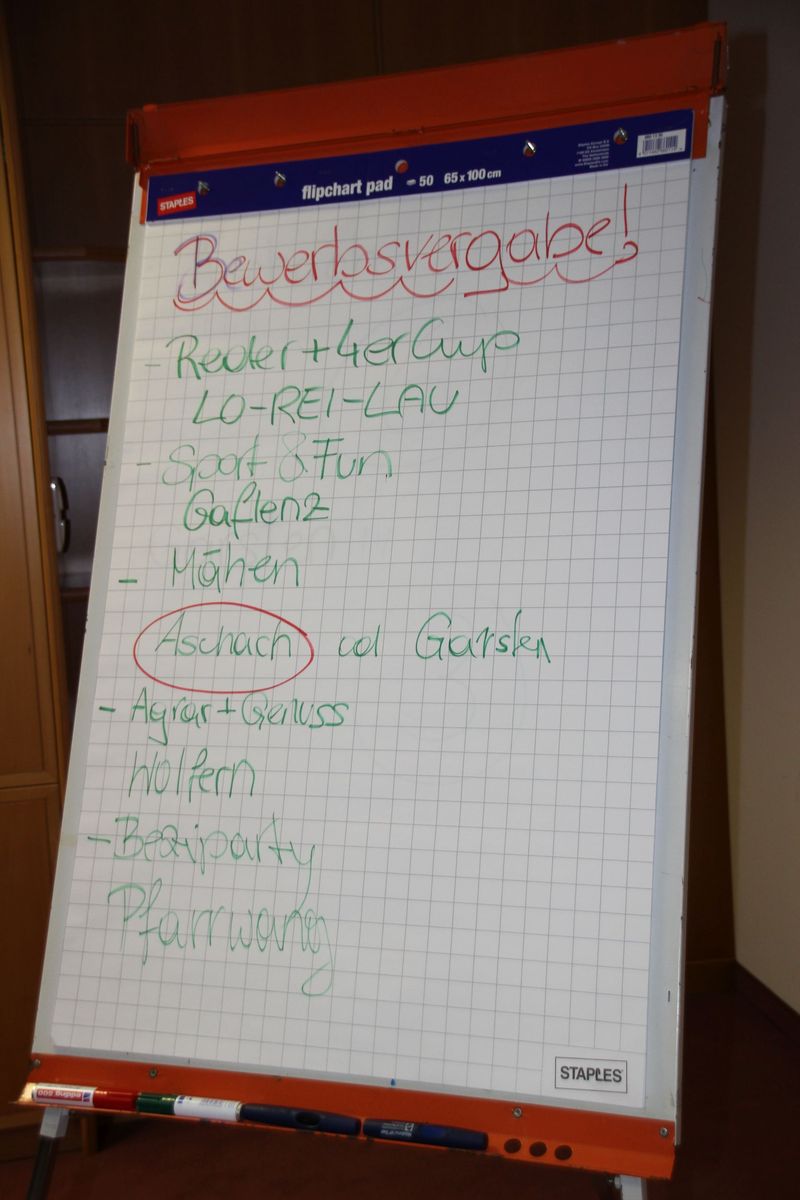 STAPLES flipchart pad 50 65 x 100 cm
Bewerbsvergabe!
- Reder + 4er Cup
LO-REI-LAU
- Sport & Fun
Gaflenz
- Mähen
Aschach od Garsten
- Agrar + Genuss
Wolfern
- Beziparty
Pfarrwang
STAPLES
edding 500